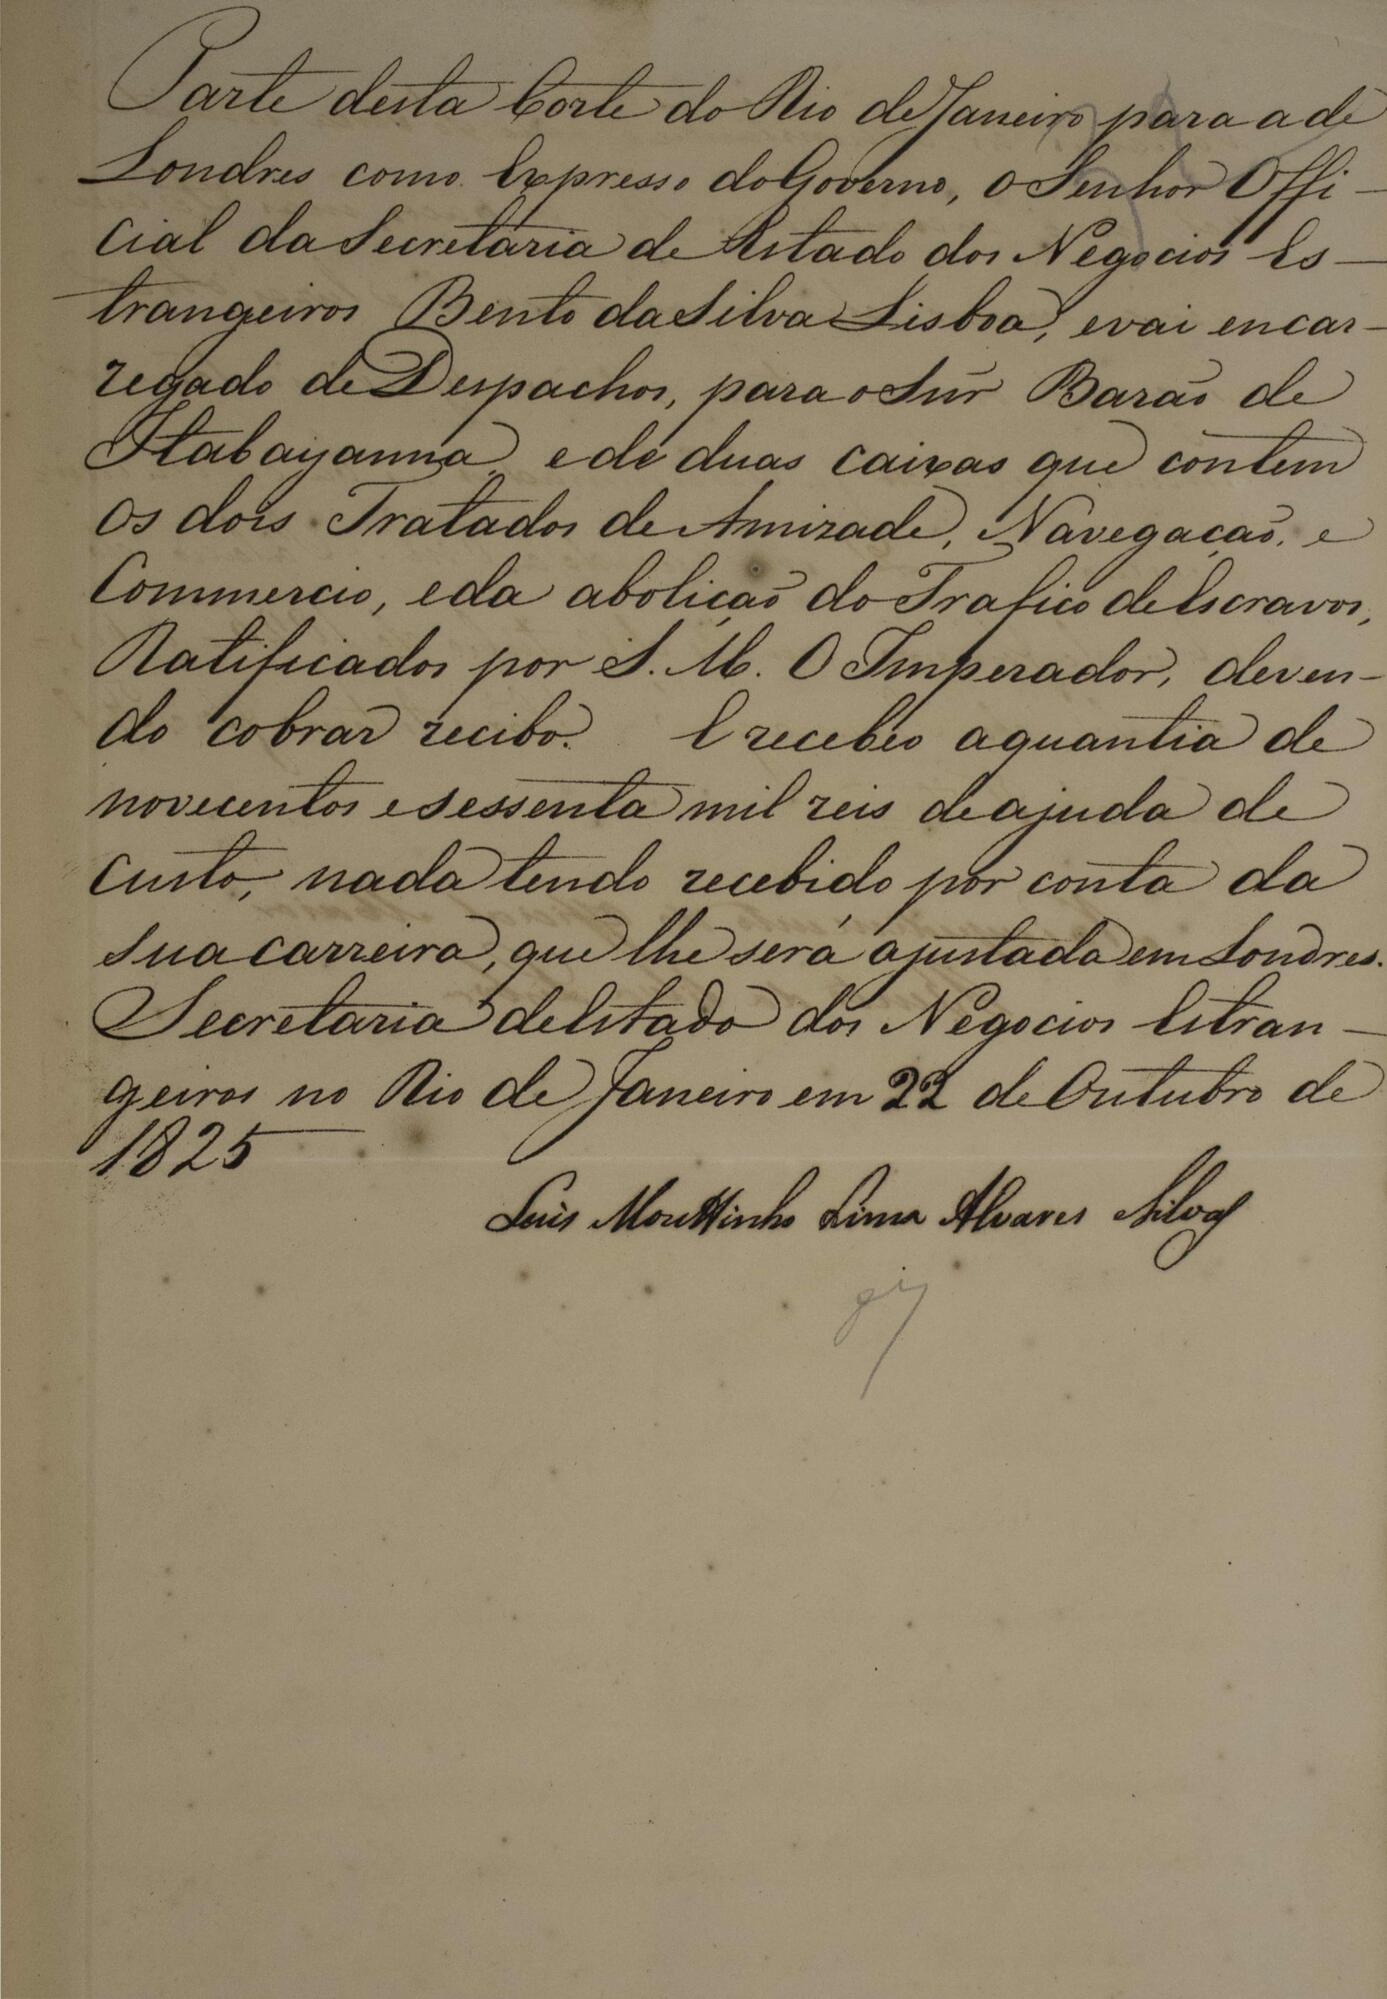 Parte desta Corte do Rio de Janeiro para a de
Londres como Expresso do Governo, o Senhor Offi-
cial da Secretaria de Estado dos Negocios Es-
trangeiros Bento da Silva Lisboa, e vai encar-
regado de Despachos, para o Snr Barão de
Itabayanna, e de duas caixas que contem
os dois Tratados de Amizade, Navegação, e
Commercio, e da abolição do Trafico de Escravos,
Ratificados por S. M. O Imperador, deven-
do cobrar recibo. E recebeo a quantia de
novecentos e sessenta mil reis de ajuda de
custo, nada tendo recebido por conta da
sua carreira, que lhe será ajustada em Londres.
Secretaria de Estado dos Negocios Estran-
geiros no Rio de Janeiro em 22 de Outubro de
1825
Luis Mouttinho Lima Alvares Silva